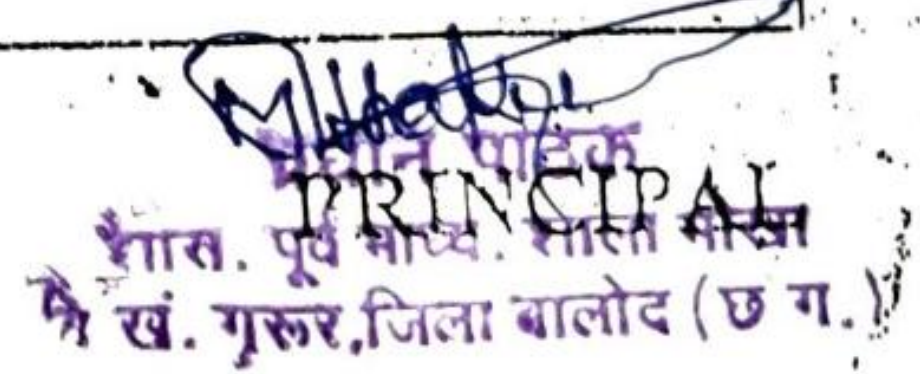 प्रधान पाठक
PRINCIPAL
शास. पूर्व माध्य. शाला
खं. गुरूर,जिला बालोद (छ ग.)